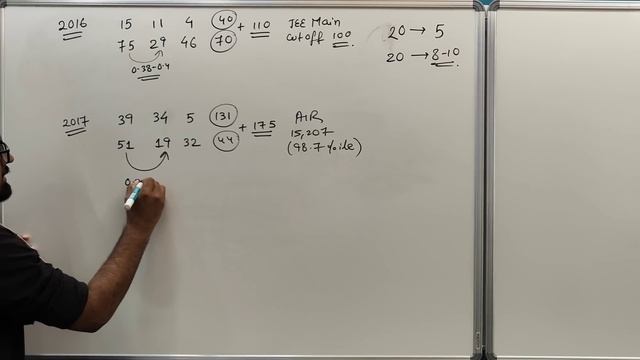 2016 15 11 4 40 + 110 JEE Main
75 29 46 70 cutoff 100
0.38-0.4
20 → 5
20 → 8-10
2017 39 34 5 131 + 175 AIR
51 19 32 44 15,207
(98.7 %ile)
0.